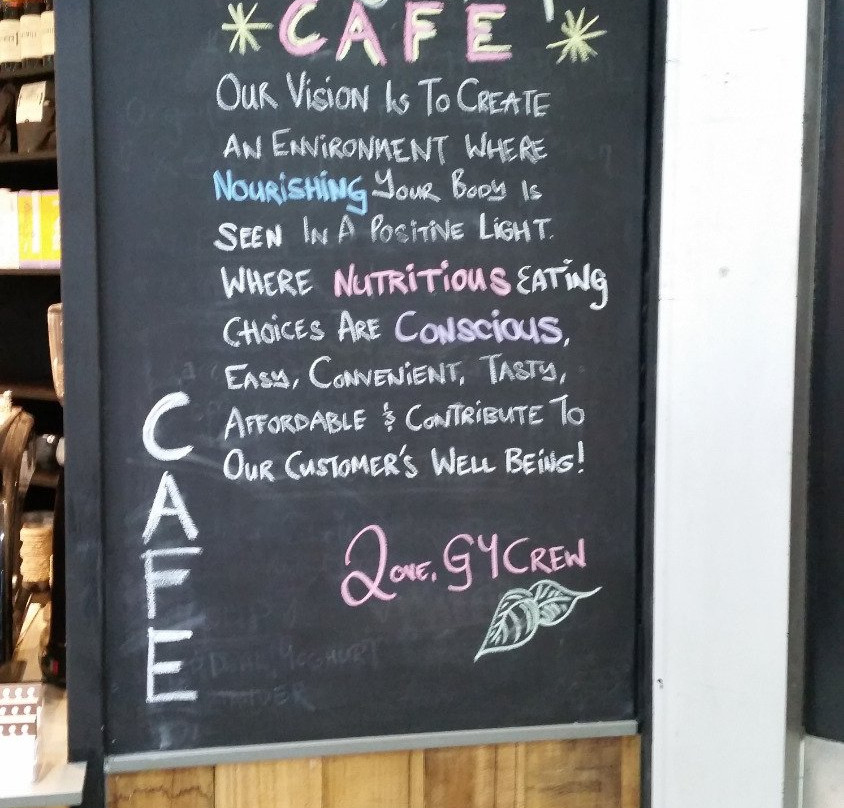 CAFE
OUR VISION IS TO CREATE
AN ENVIRONMENT WHERE
NOURISHING YOUR BODY IS
SEEN IN A POSITIVE LIGHT.
WHERE NUTRITIOUS EATING
CHOICES ARE CONSCIOUS,
EASY, CONVENIENT, TASTY,
AFFORDABLE & CONTRIBUTE TO
OUR CUSTOMER'S WELL BEING!
LOVE, GYCREW
CAFE
YOGHURT